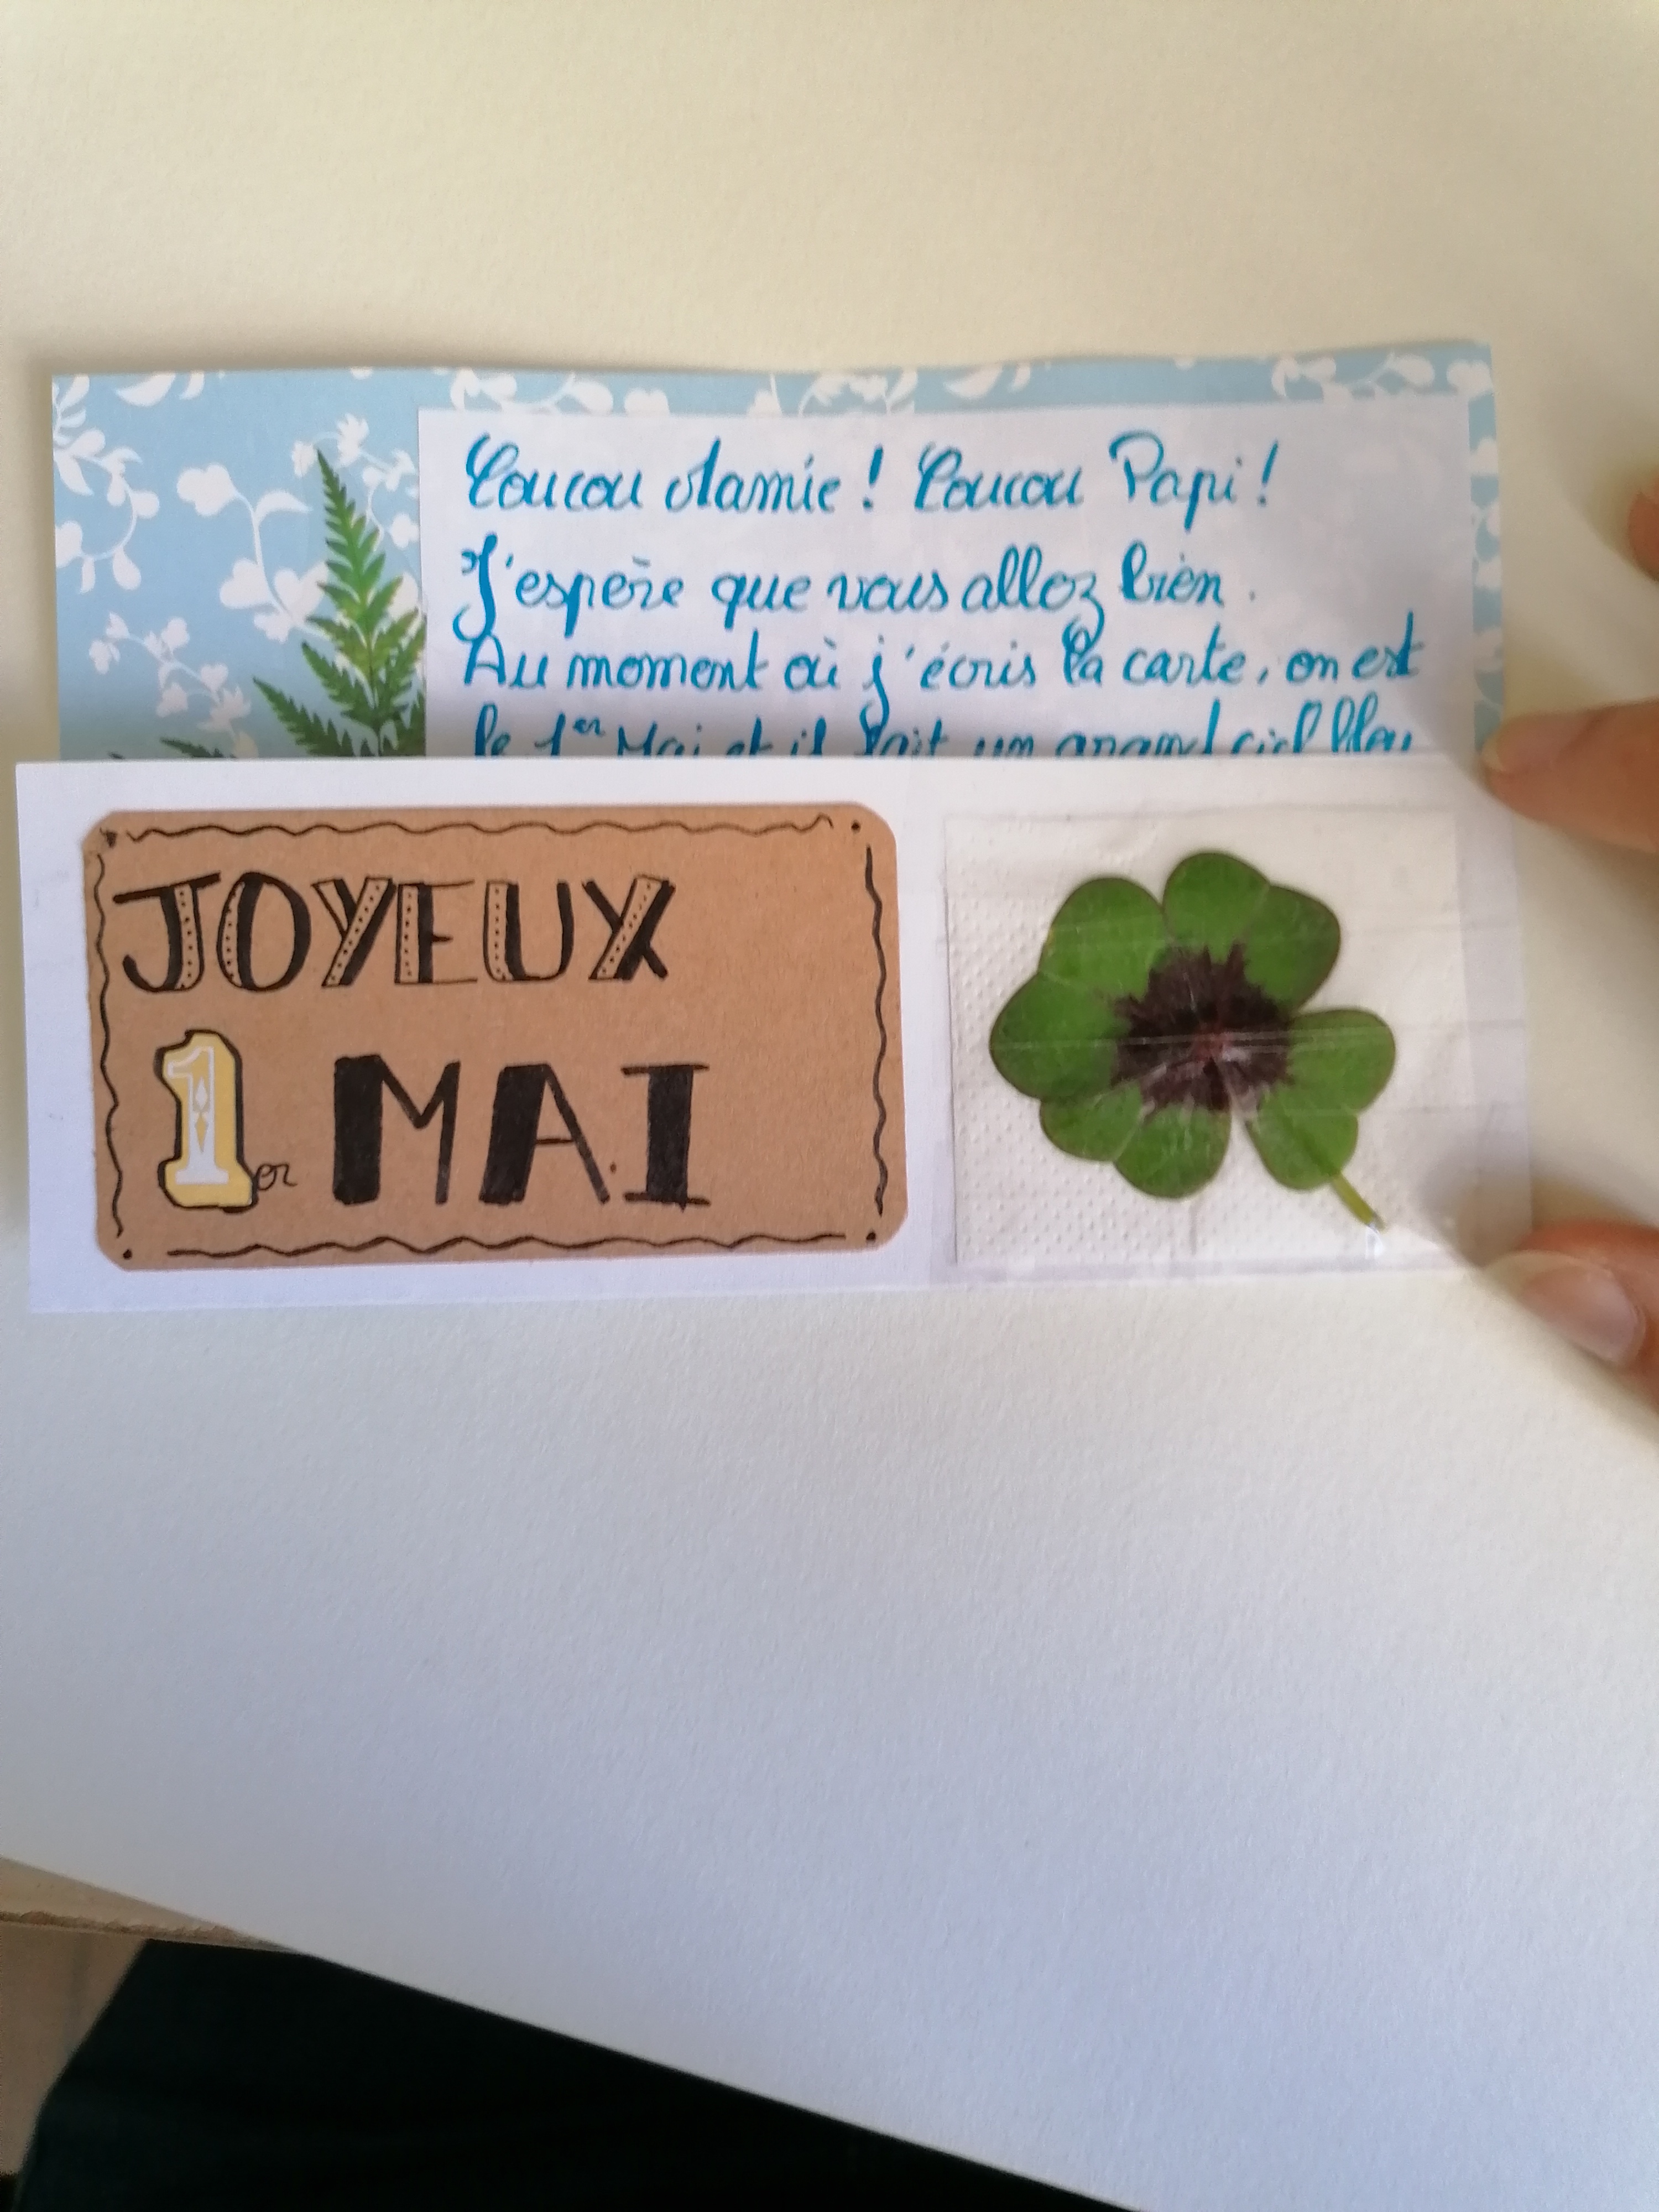 Coucou Mamie ! Coucou Papi !
J'espère que vous allez bien.
Au moment où j'écris la carte, on est
le 1er Mai et il fait un grand ciel bleu
JOYEUX
1er MAI